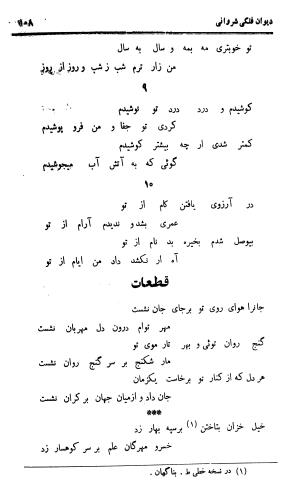 دیوان فلکی شروانی
۱۰۸
تو خوبتری مه بمه و سال به سال
من زار ترم شب ز شب و روز از روز
۹
کوشیدم و درد درد تو نوشیدم
کردی تو جفا و من فرو پوشیدم
کمتر شدی ار چه بیشتر کوشیدم
گوئی که به آتش آب میجوشیدم
۱۰
در آرزوی یافتن کام از تو
عمری بشد و ندیدم آرام از تو
بیوصل شدم بخیره بد نام از تو
آه ار نکشد داد من ایام از تو
قطعات
جانرا هوای روی تو برجای جان نشست
مهر توام درون دل مهربان نشست
گنج روان توئی و بهر تار موی تو
مار شکنج بر سر گنج روان نشست
هر دل که از کنار تو برخاست یکزمان
جان داد و ازمیان جهان برکران نشست
***
خیل خزان بتاختن (۱) برسپه بهار زد
خسرو مهرگان علم بر سر کوهسار زد
(۱) در نسخه خطی ط . بتاگهان .